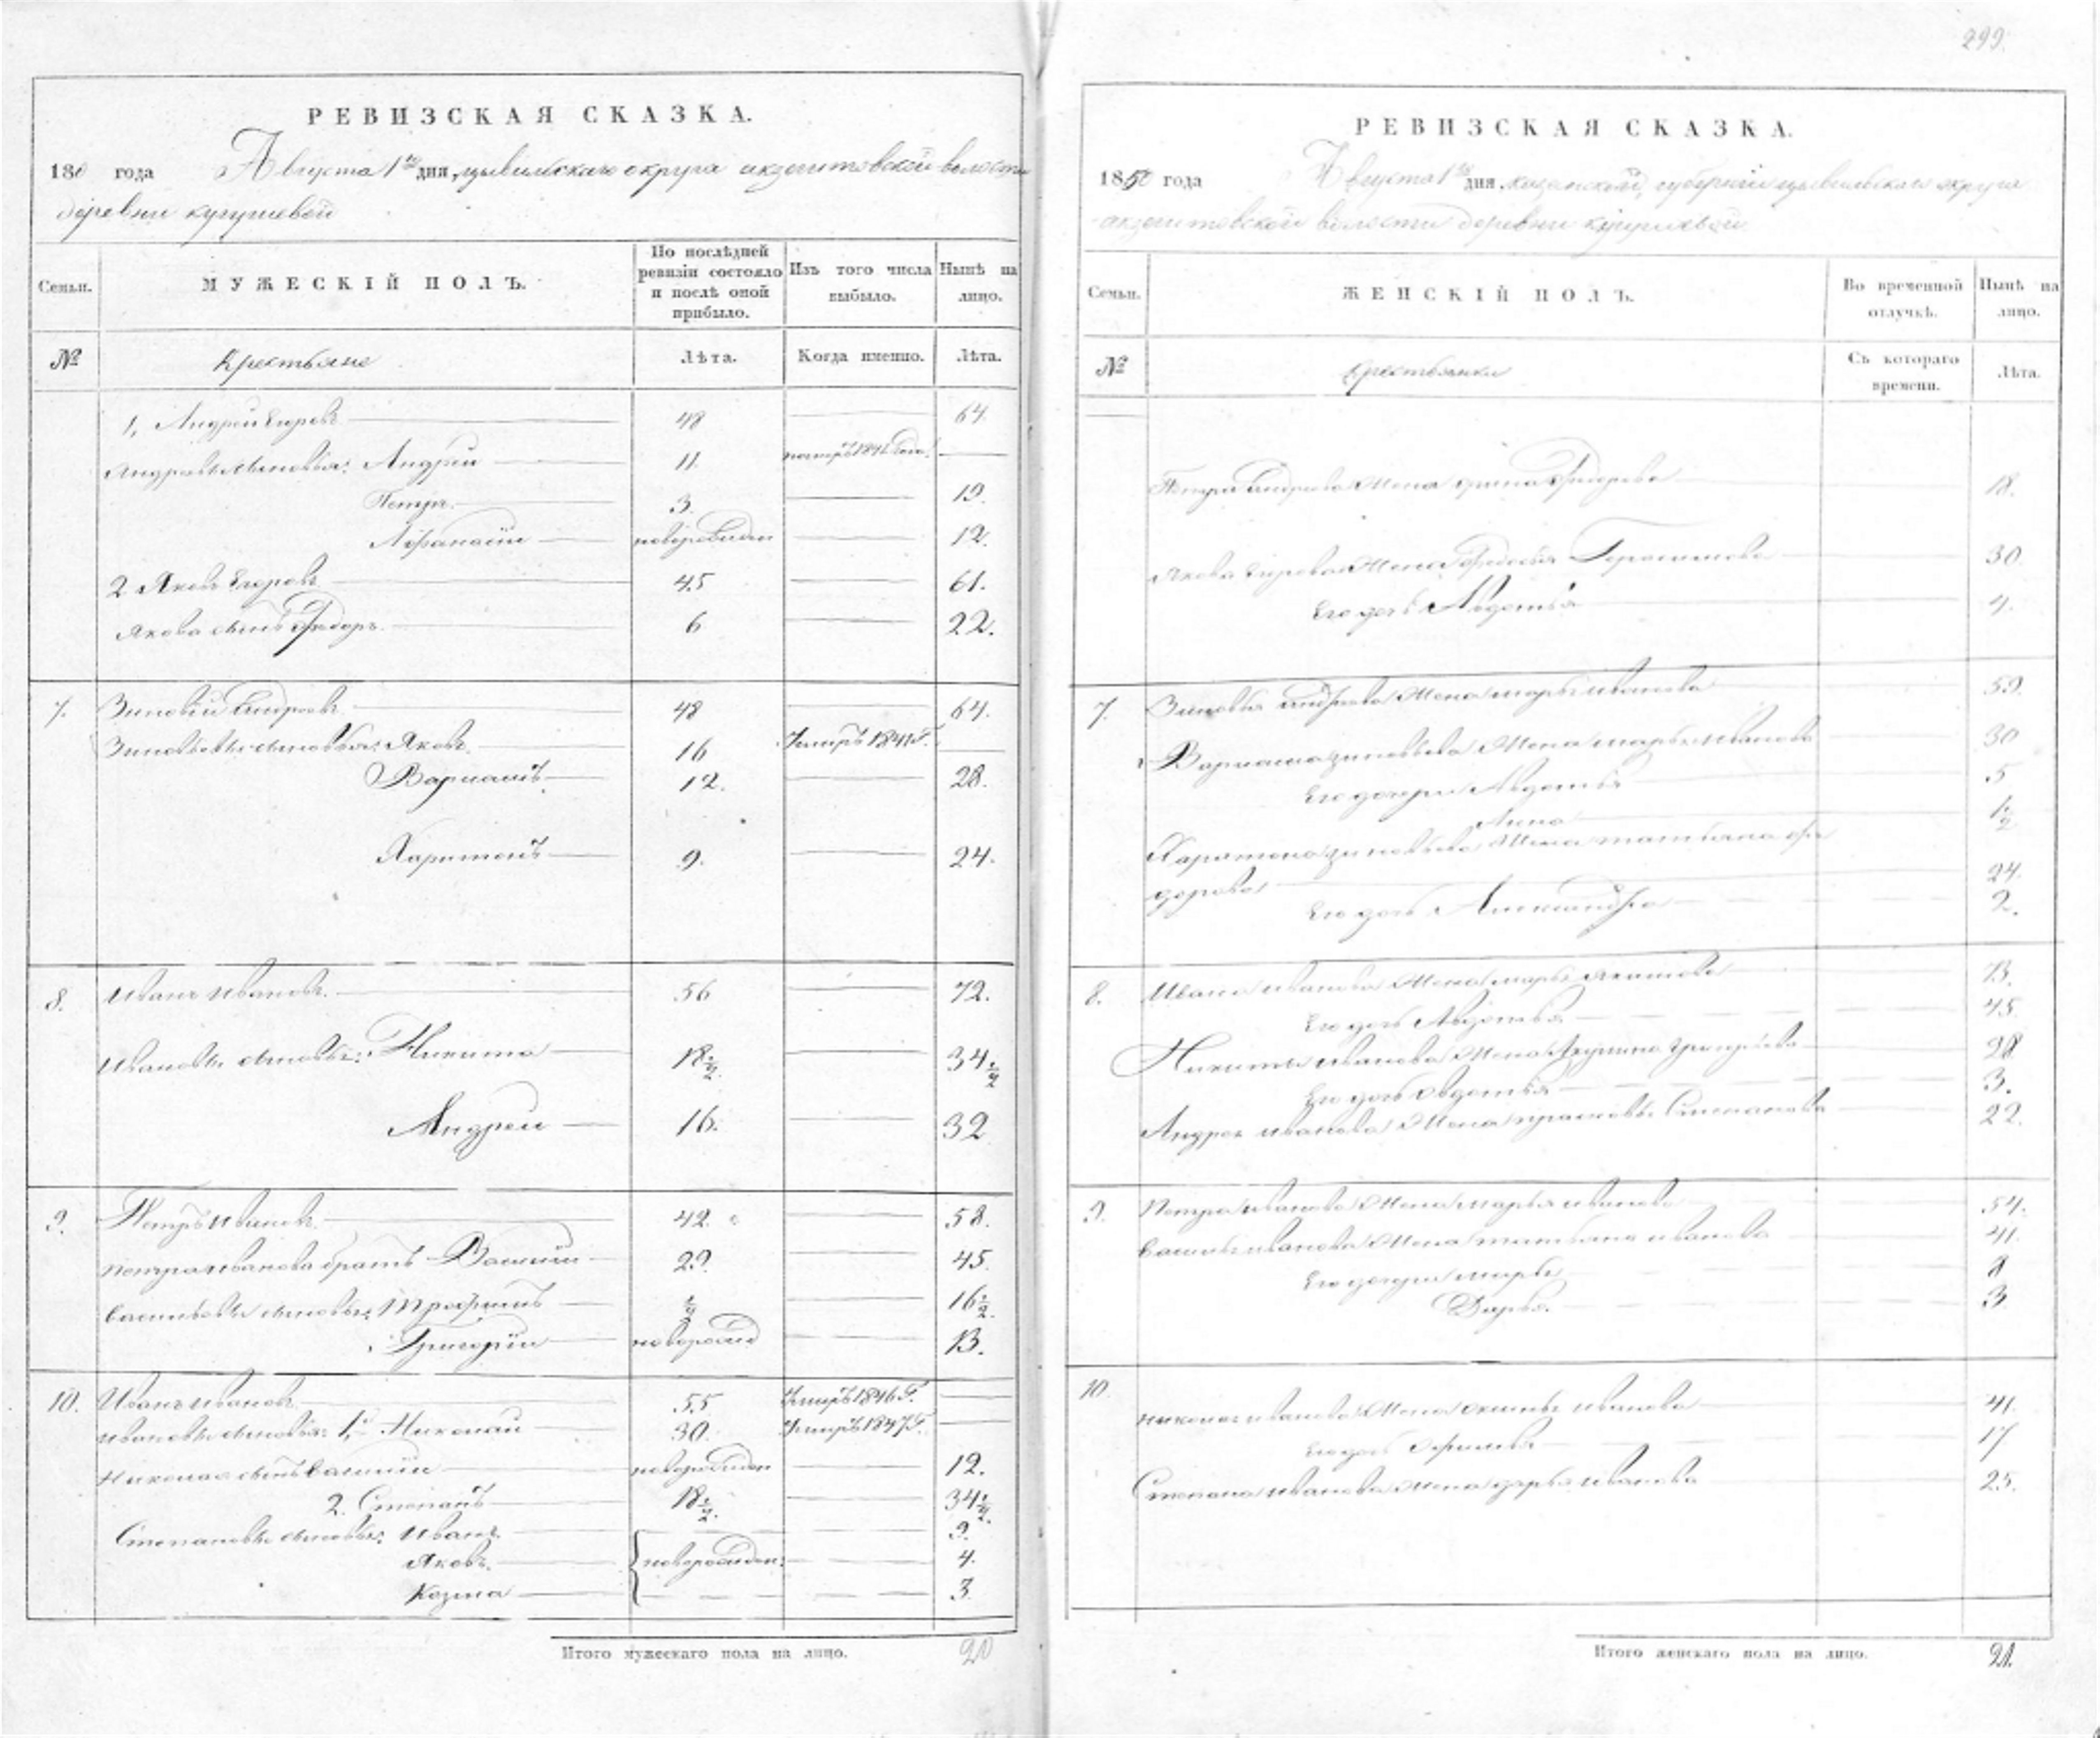 299.
РЕВИЗСКАЯ СКАЗКА.
18 0 года Августа 1го дня, цывильскаго округа акзегитовской волости
деревни кугушевой
Семьи. МУЖЕСКІЙ ПОЛЪ. По послѣдней ревизіи состояло и послѣ оной прибыло. Изъ того числа выбыло. Нынѣ на лицо.
№ Крестьяне Лѣта. Когда именно. Лѣта.
1, Андрей Егоровъ 48 64.
Андреевы сыновья: Андрей 11. 1841 года
Петръ 3. 19.
Афанасій новорожден 12.
2 Яковъ Егоровъ 45 61.
Якова сынъ Федоръ 6 22.
7. Зиновій Андреевъ 48 64.
Зиновьевы сыновья: Яковъ 16 Умеръ 1841 г.
Варламъ 12. 28.
Харитонъ 9. 24.
8. Иванъ Ивановъ 56 72.
Ивановы сыновья: Никита 18½ 34½
Андрей 16. 32
9. Петръ Ивановъ 42. 58.
Петра Иванова братъ Василій 29. 45.
Васильевы сыновья: Трофимъ ½ 16½.
Григорій новорожд 13.
10. Иванъ Ивановъ 55 Умеръ 1846 г.
Ивановы сыновья: 1й Николай 30. Умеръ 1847 г.
Николая сынъ Василій новорожден 12.
2. Степанъ 18½. 34½.
Степановы сыновья: Иванъ 9.
Яковъ новорожден: 4.
Козма 3.
Итого мужескаго пола на лицо. 20
РЕВИЗСКАЯ СКАЗКА.
1850 года Августа 1го дня казанской губерніи цывильскаго округа
акзегитовской волости деревни кугушевой
Семьи. ЖЕНСКІЙ ПОЛЪ. Во временной отлучкѣ. Нынѣ на лицо.
№ Крестьянки Съ котораго времени. Лѣта.
Петра Андреева жена Федорова 18.
Якова Егорова жена Федосья Герасимова 30
Его дочь Авдотья 4.
7. Зиновья Андреева жена марья иванова 59.
Варлама зиновьева жена марья иванова 30
Его дочери Авдотья 5
Анна 1½
Харитона зиновьева жена татьяна фе
дорова 24.
Его дочь Александра 2.
8. Ивана иванова жена марья 73.
Его дочь Авдотья 45.
Никиты иванова жена Акулина григорьева 28
Его дочь Авдотья 3.
Андрея иванова жена прасковья Степанова 22.
9. Петра иванова жена марья иванова 54.
Василья иванова жена татьяна иванова 41.
Его дочери марья 8
Дарья 3
10. Николая иванова жена иванова 41.
Его дочь 17
Степана иванова жена дарья иванова 25.
Итого женскаго пола на лицо. 21.